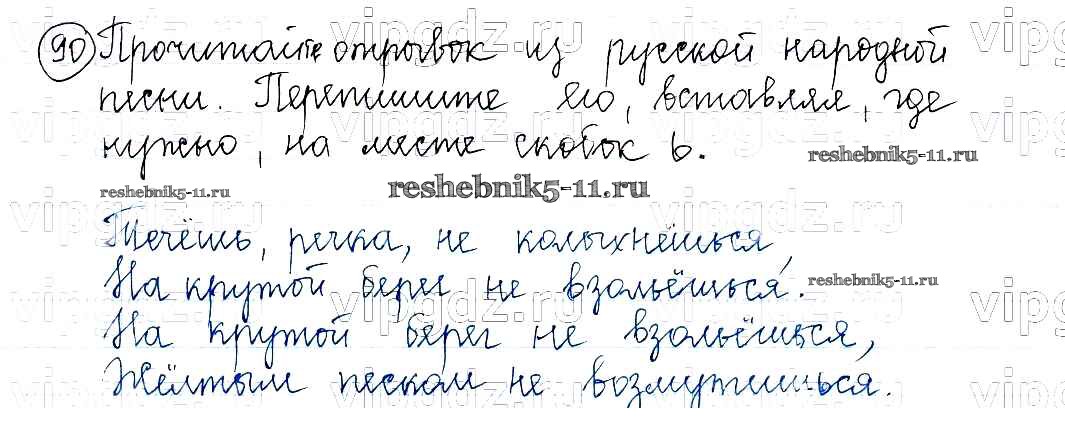 90 Прочитайте отрывок из русской народной
песни. Перепишите его, вставляя, где
нужно, на месте скобок ь.
reshebnik5-11.ru
reshebnik5-11.ru
reshebnik5-11.ru
Течёшь, речка, не колыхнёшься,
На крутой берег не взольёшься.
reshebnik5-11.ru
На крутой берег не взольёшься,
Жёлтым песком не возмутишься.
vipgdz.ru